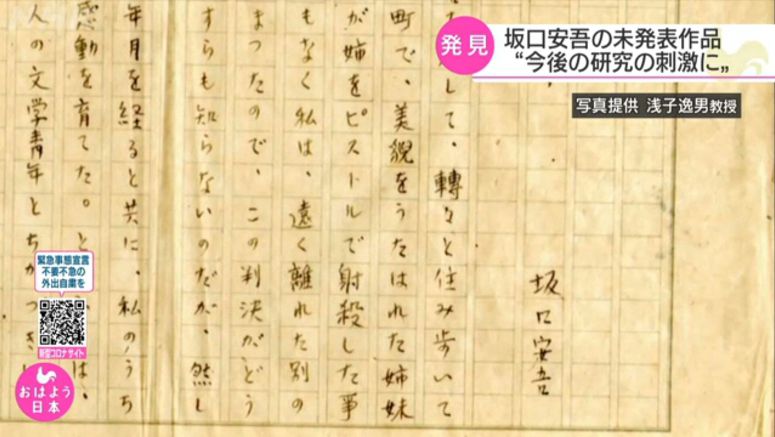 発見
坂口安吾の未発表作品
“今後の研究の刺激に„
写真提供 浅子逸男教授
坂口安吾
して、轉々と住み歩いて
町で、美貌をうたはれた姉妹
が姉をピストルで射殺した事
もなく私は、遠く離れた別の
まつたので、この判決がどう
すらも知らないのだが、然し
年月を経ると共に、私のうち
感動を育てた。と
は、
人の文学青年とちがつき
緊急事態宣言
不要不急の
外出自粛を
新型コロナサイト
おはよう
日本